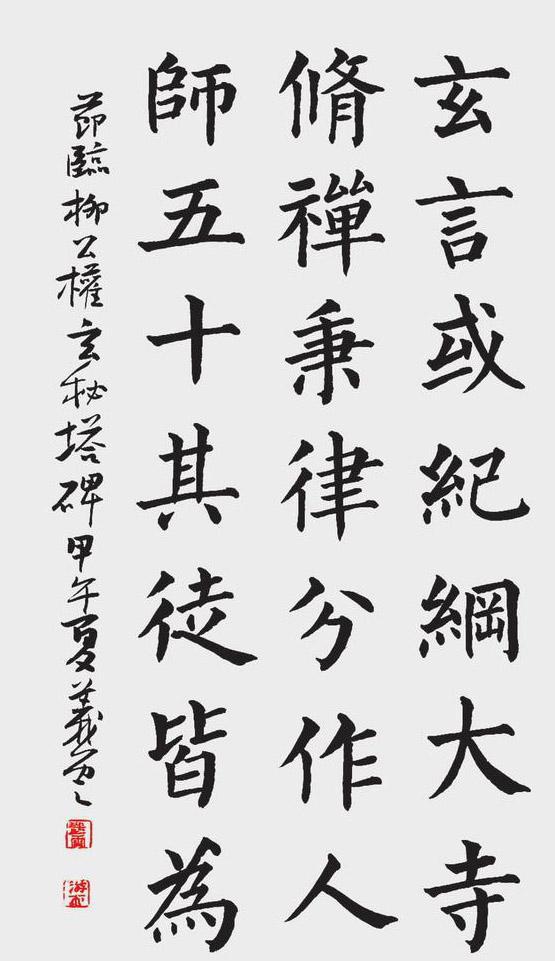 玄言或紀綱大寺
脩禪秉律分作人
師五十其徒皆為
節臨柳公權玄秘塔碑甲午夏義